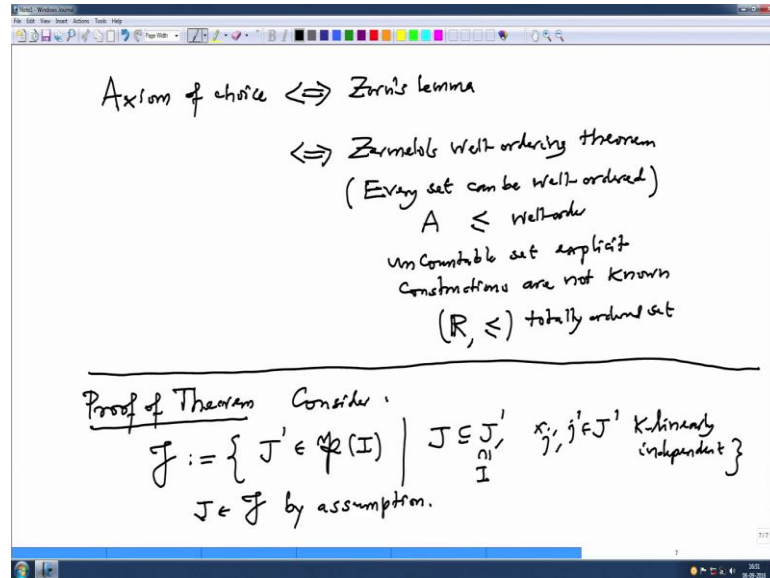 Note1 - Windows Journal
File Edit View Insert Actions Tools Help
Page Width
Axiom of choice <=> Zorn's lemma
<=> Zermelo's well-ordering theorem
(Every set can be well-ordered)
A ≤ well-order
uncountable set explicit
constructions are not known
(ℝ, ≤) totally ordered set
Proof of Theorem Consider.
𝒥 := { J' ∈ 𝔓(I) | J ⊆ J' ⊆ I, x_j', j' ∈ J' K-linearly independent }
J ∈ 𝒥 by assumption.
7/7
7
16:51